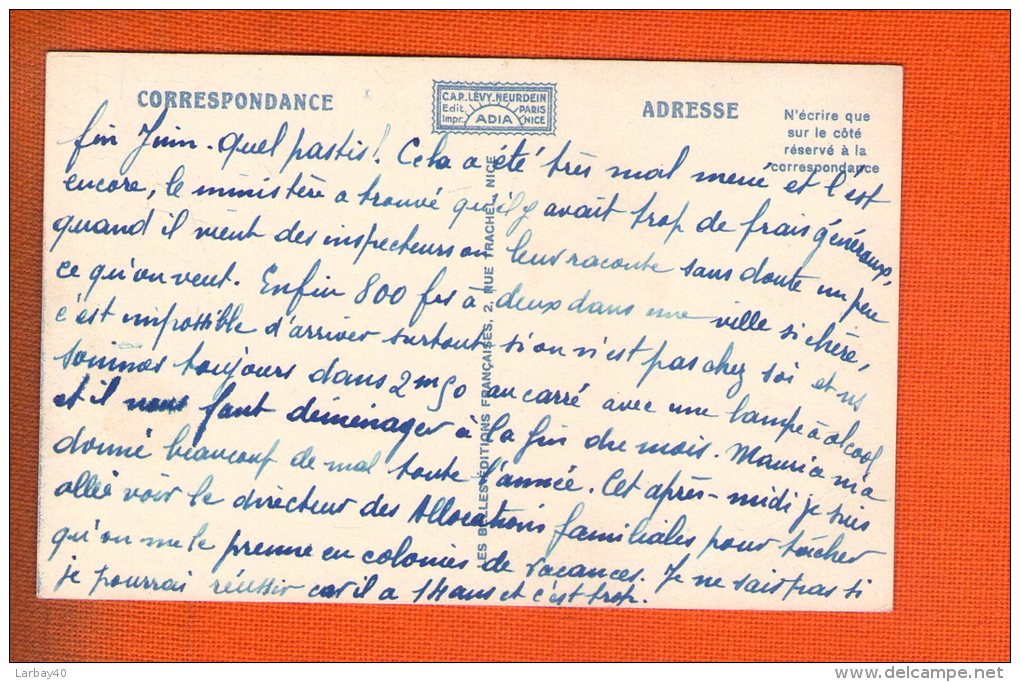 CORRESPONDANCE
C.A.P. LÉVY. NEURDEIN
Edit. PARIS
Impr. ADIA NICE
ADRESSE
N'écrire que
sur le côté
réservé à la
correspondance
fin Juin. Quel pastis! Cela a été très mal mené et l'est
encore, le ministère a trouvé qu'il y avait trop de frais généraux,
quand il vient des inspecteurs on leur raconte sans doute un peu
ce qu'on veut. Enfin 800 frs à deux dans une ville si chère,
c'est impossible d'arriver surtout si on n'est pas chez soi et ns
sommes toujours dans 2m50 au carré avec une lampe à alcool
et il nous faut déménager à la fin du mois. Maurice m'a
donné beaucoup de mal toute l'année. Cet après-midi je suis
allée voir le directeur des Allocations familiales pour tâcher
qu'on me le prenne en colonies de vacances. Je ne sais pas si
je pourrai réussir car il a 14 ans et c'est trop.
LES BELLES ÉDITIONS FRANÇAISES, 2, RUE TRACHEL, NICE
Larbay40
www.delcampe.net